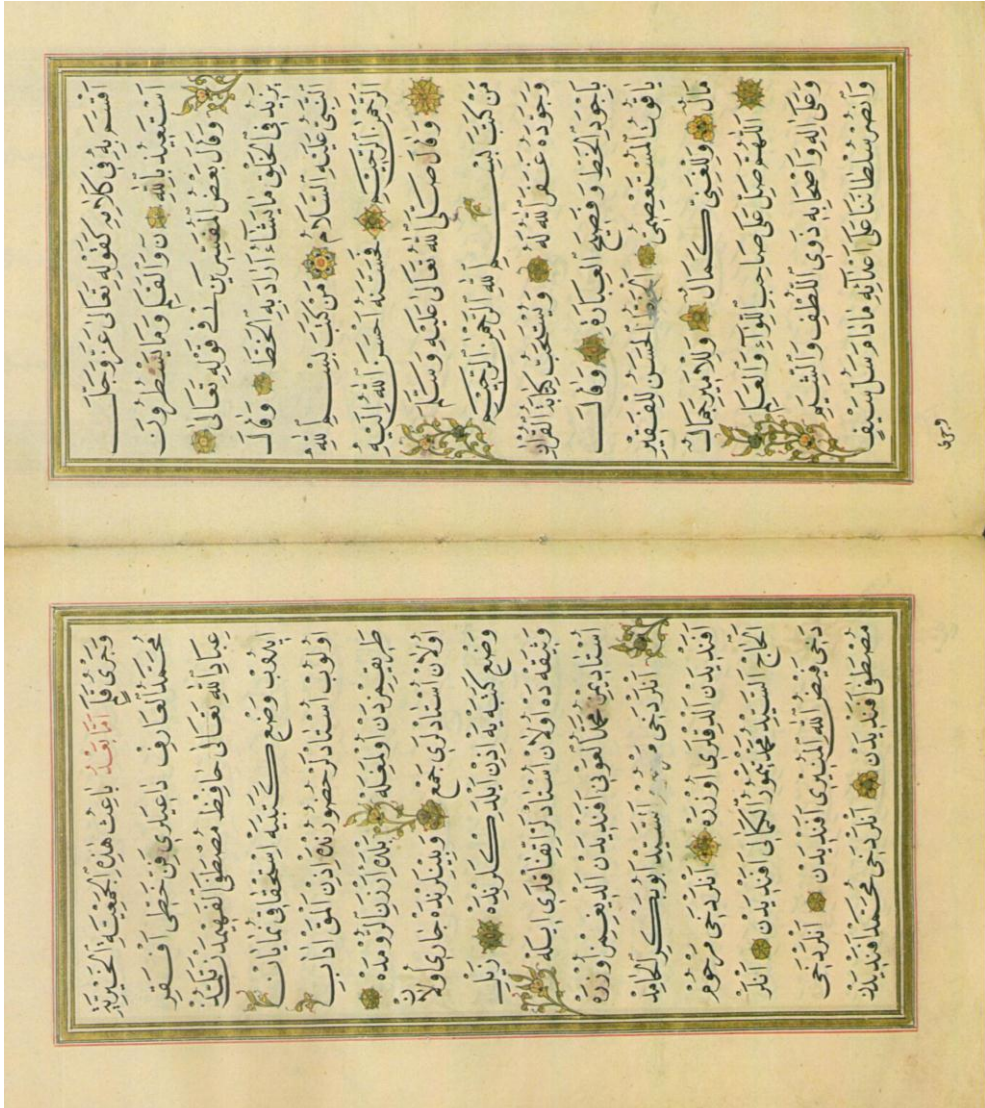 اقسم به في كلامه كقوله تعالى عز وجل
استعيذ بالله ن والقلم وما يسطرون
وقال بعض المفسرين في قوله تعالى
يزيد في الخلق ما يشاء اراد به الخط وقال
النبي عليه السلام من كتب بسم الله
الرحمن الرحيم فحسنه احسن الله اليه
وقال صلى الله تعالى عليه وسلم
من كتب بسم الله الرحمن الرحيم
وجوده غفر الله له ويستحب كتابة القرآن
باجود الخط وفصيح العبارة وقال
ياقوت المستعصمي الخط الحسن للفقير
مال وللغني كمال وللامير جمال
اللهم صل على صاحب اللواء والعلم
وعلى اله واصحابه ذوي اللطف والشيم
وانصر سلطاننا على اعدائه ما دام سل سيف
وجرى
وجرى قلم اما بعد باعث هذه الجمعية الخيرية
محمد العارف داعيلري فن خطى افقر
عباد الله تعالى حافظ مصطفى الفهيمدن تلمذ
ايدوب وضع كتبيه استحقاقي نمايان
اولوب استادلر حضورنده اذن المق ادابي
طريقمزدن اولمغله بلده ارزن الرومده
اولان استادلري جمع وبينلرنده جاري اولان
وضع كتبه يه اذن ايلدكلرنده
وثيقه ده اولان استادلر اتفاقلري ايله
استاديمز محمد العوني افنديدن الديغمز اوزره
انلر دخي مرحوم السيد ابوبكر الحامد
افنديدن الدقلري اوزره انلر دخي مرحوم
الحاج السيد محمد تيمور الكمالي افنديدن انلر
دخي فيض الله المنيري افنديدن انلر دخي
مصطفى افنديدن انلر دخي محمد افنديدن